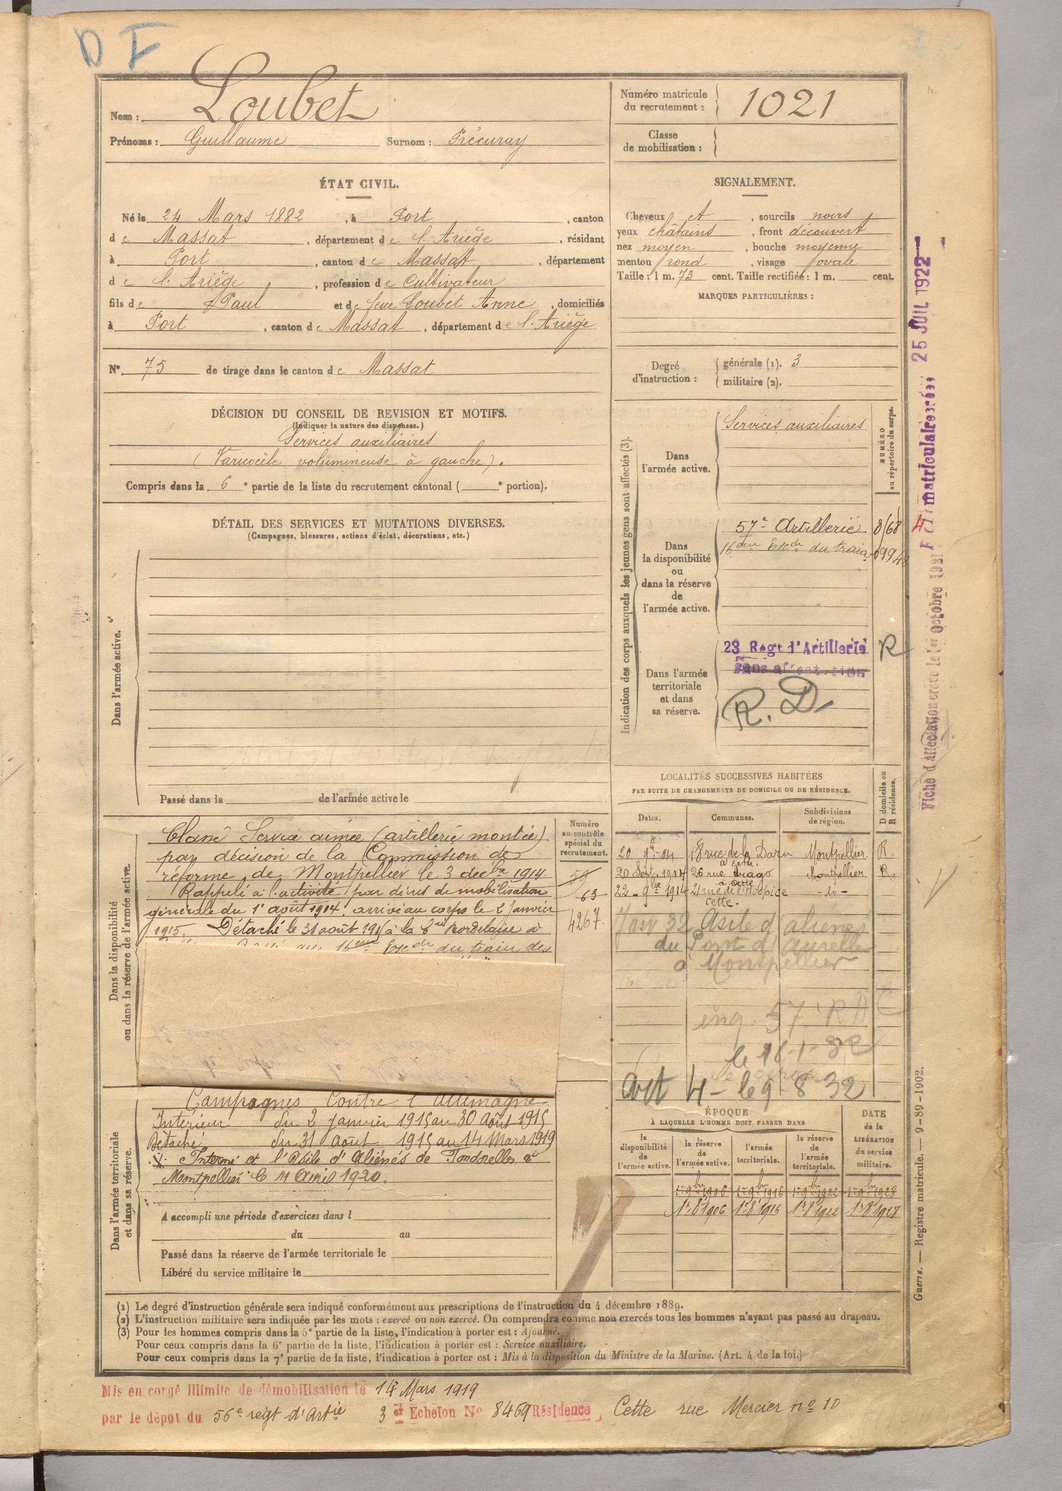 D F
Nom : Loubet
Prénoms : Guillaume Surnom : Pécuray
Numéro matricule du recrutement : 1021
Classe de mobilisation :
ÉTAT CIVIL.
Né le 24 Mars 1882, à Port, canton
de Massat, département de l'Ariège, résidant
à Port, canton de Massat, département
de l'Ariège, profession de Cultivateur
fils de Paul et de Loubet Anne, domiciliés
à Port, canton de Massat, département de l'Ariège
N° 75 de tirage dans le canton de Massat
DÉCISION DU CONSEIL DE REVISION ET MOTIFS.
(Indiquer la nature des dispenses.)
Services auxiliaires
(Varicocèle volumineuse à gauche).
Compris dans la 6e partie de la liste du recrutement cantonal ( e portion).
DÉTAIL DES SERVICES ET MUTATIONS DIVERSES.
(Campagnes, blessures, actions d'éclat, décorations, etc.)
Dans l'armée active.
Passé dans la de l'armée active le
SIGNALEMENT.
Cheveux , sourcils noirs
yeux châtains, front découvert
nez moyen, bouche moyenne
menton rond, visage ovale
Taille : 1 m. 73 cent. Taille rectifiée : 1 m. cent.
MARQUES PARTICULIÈRES :
Degré d'instruction : générale (1). 3
militaire (2).
Indication des corps auxquels les jeunes gens sont affectés (3).
NUMÉRO au répertoire du corps.
Dans l'armée active.
Services auxiliaires
Dans la disponibilité ou dans la réserve de l'armée active.
57e Artillerie
16eme du train
Dans l'armée territoriale et dans sa réserve.
23 Régt d'Artillerie R
Sans affectation
R. D
LOCALITÉS SUCCESSIVES HABITÉES
PAR SUITE DE CHANGEMENTS DE DOMICILE OU DE RÉSIDENCE.
Dates. Communes. Subdivisions de région. D domicile ou R résidence.
18 rue de la Montpellier R.
à Cette
26 rue Montpellier R
à Cette
-di-
Cette
Janv 32 Asile d'aliénés
du Pont d'Aurelle
à Montpellier
57 RA
le 16-1-32
art 4 - le 9-8-32
Dans la disponibilité ou dans la réserve de l'armée active.
Numéro au contrôle spécial du recrutement.
Classé Service armée (artillerie montée)
par décision de la Commission de
réforme de Montpellier le 3 décbre 1914
Rappelé à l'activité par décret de mobilisation
générale du 1er août 1914. arrivé au corps le 2 janvier
1915. Détaché le 31 août 1915 à la
63
4267
du train des
Dans l'armée territoriale et dans sa réserve.
Campagnes Contre l'Allemagne
Intérieur du 2 Janvier 1915 au 30 Août 1915
Détaché du 31 Août 1915 au 14 Mars 1919
X Interné à l'Asile d'Aliénés de à
Montpellier le 11 Avril 1920.
A accompli une période d'exercices dans l
du au
Passé dans la réserve de l'armée territoriale le
Libéré du service militaire le
ÉPOQUE
À LAQUELLE L'HOMME DOIT PASSER DANS
DATE DE LA LIBÉRATION du service militaire.
la disponibilité de l'armée active. la réserve de l'armée active. l'armée territoriale. la réserve de l'armée territoriale.
(1) Le degré d'instruction générale sera indiqué conformément aux prescriptions de l'instruction du 4 décembre 1889.
(2) L'instruction militaire sera indiquée par les mots : exercé ou non exercé. On comprendra comme non exercés tous les hommes n'ayant pas passé au drapeau.
(3) Pour les hommes compris dans la 5e partie de la liste, l'indication à porter est : Ajourné.
Pour ceux compris dans la 6e partie de la liste, l'indication à porter est : Service auxiliaire.
Pour ceux compris dans la 7e partie de la liste, l'indication à porter est : Mis à la disposition du Ministre de la Marine. (Art. 4 de la loi.)
Mis en congé illimité de démobilisation le 14 Mars 1919
par le dépôt du 56e regt d'Artie 3 e Echelon N° 8469 Résidence Cette rue Mercier n° 10
Fiche d'affectation créée le 1er Octobre 1921
matriculaire créée 25 JUIL 1922
Guerre. — Registre matricule. — 9-89-1902.